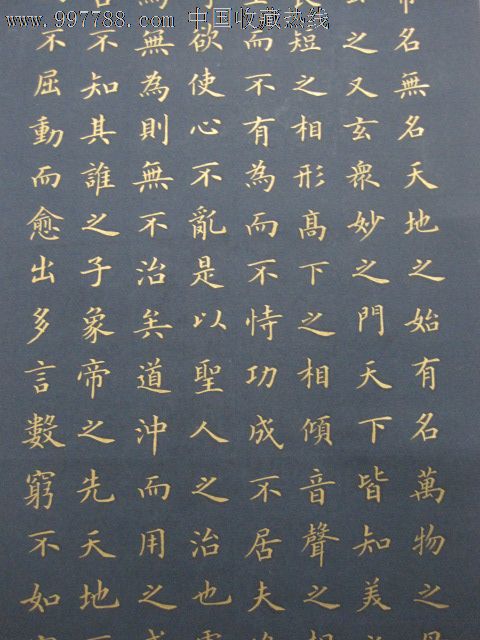 www.997788.com 中国收藏热线
名無名天地之始有名萬物之
之又玄眾妙之門天下皆知美
長短之相形高下之相傾音聲之相
而不有為而不恃功成不居夫
欲使心不亂是以聖人之治也
為無為則無不治矣道沖而用之
不知其誰之子象帝之先天地
不屈動而愈出多言數窮不如